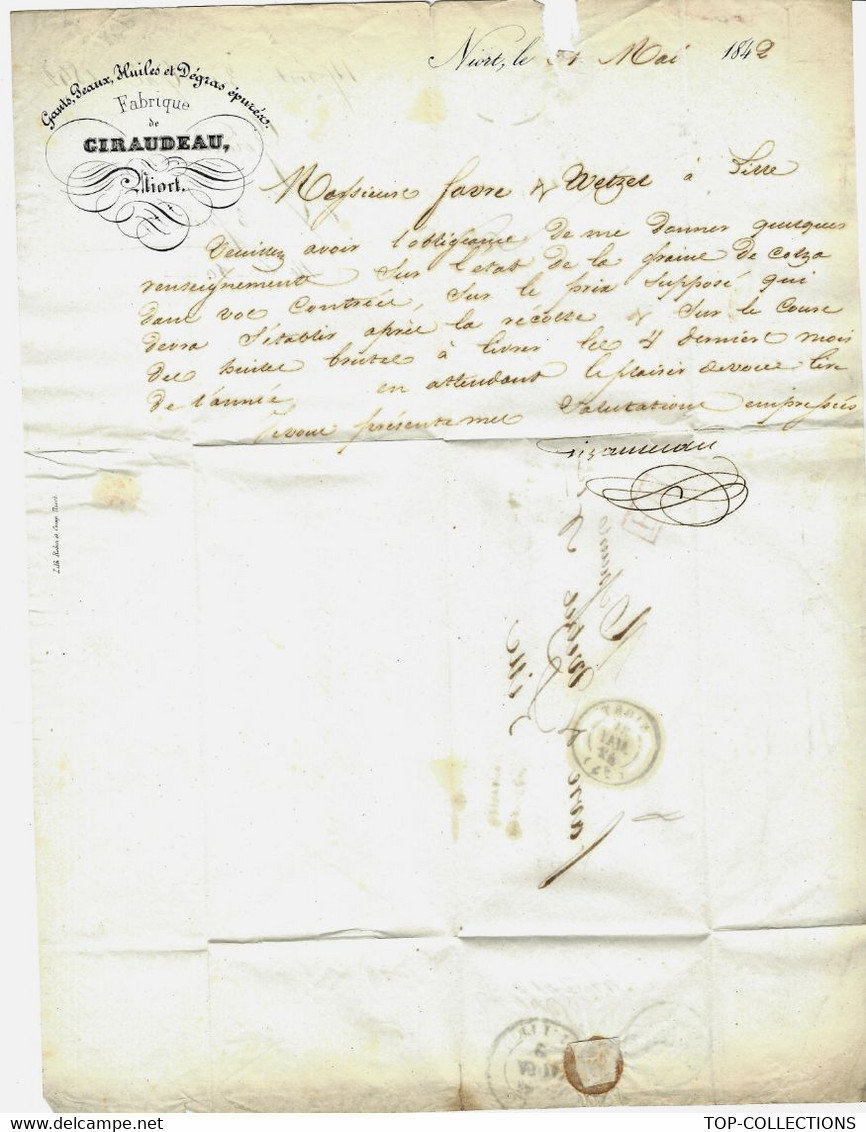 Gants, Peaux, Huiles et Dégras épurés.
Fabrique
de
GIRAUDEAU,
Niort.
Niort, le 31 Mai 1842
Messieurs favre & Wetzel à Lille
Veuillez avoir l'obligeance de me donner quelques
renseignements sur l'état de la graine de colza
dans vos Contrées, sur le prix supposé qui
devra s'établir après la récolte & sur le Cours
des huiles brutes à livrer les 4 derniers mois
de l'année. en attendant le plaisir de vous lire
Je vous présente mes Salutations empressées
Giraudeau
Lith. Robin et Comp. Niort.
TOP-COLLECTIONS